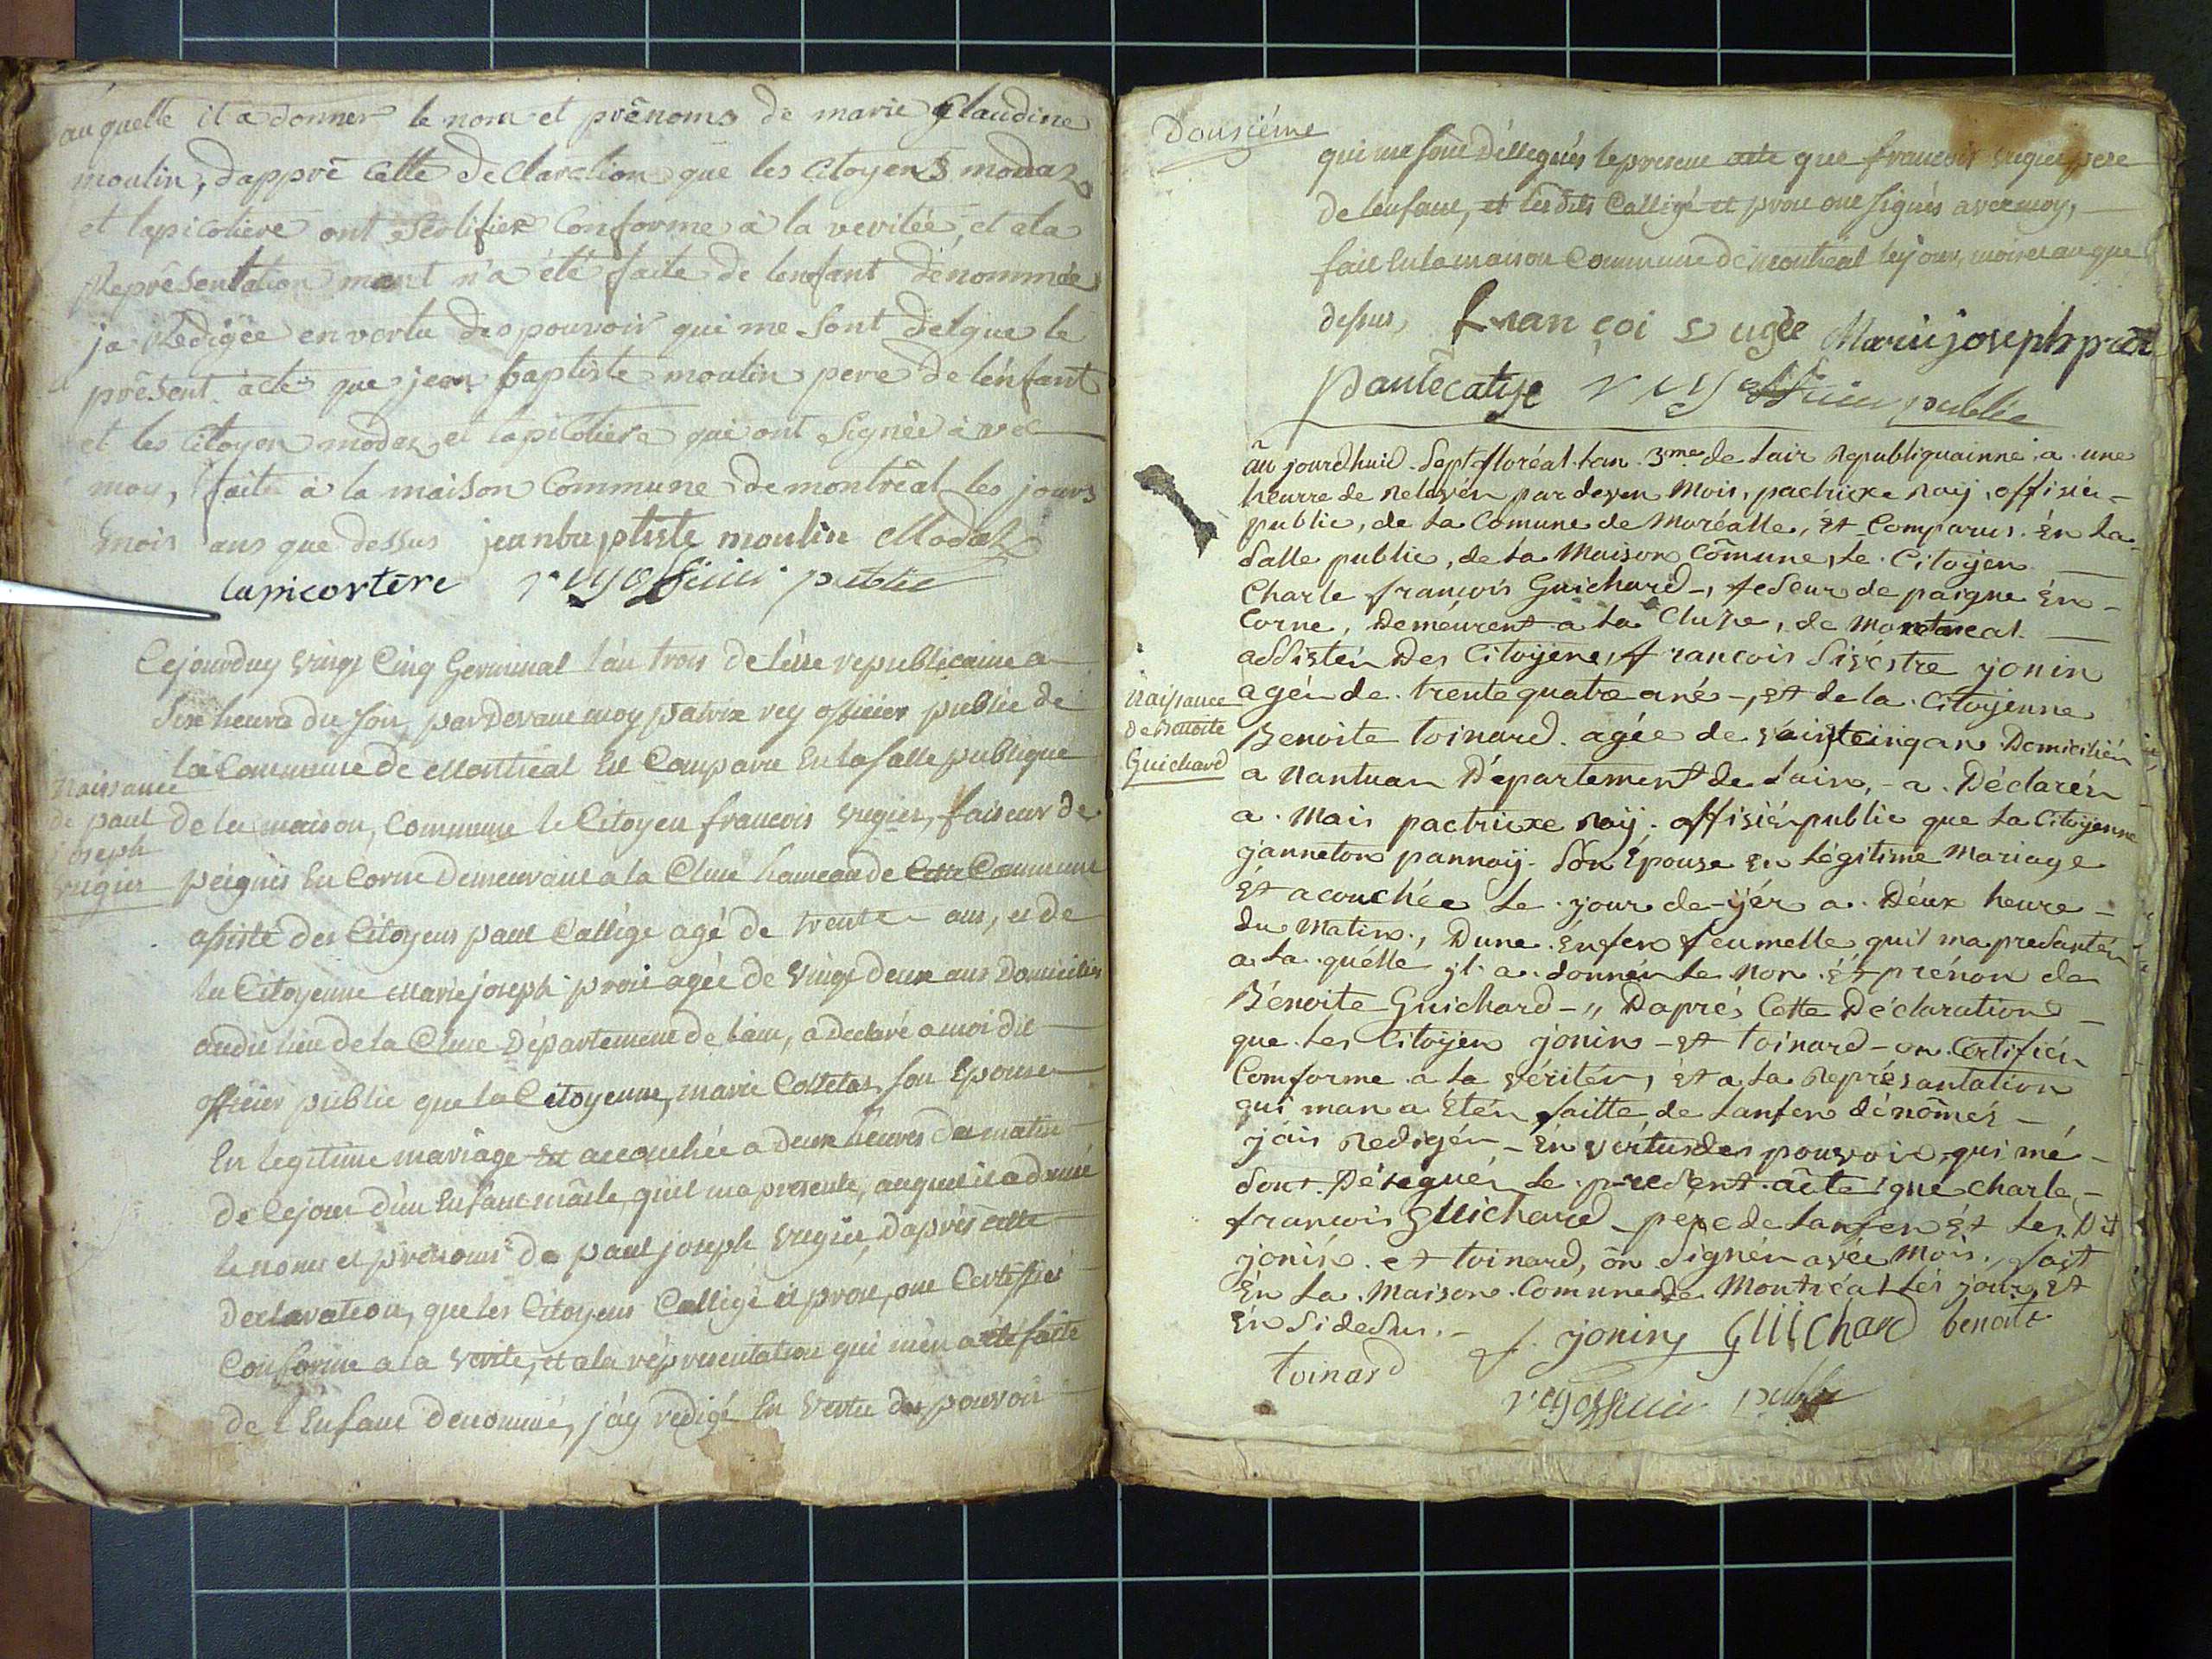 auquelle il a donner le nom et prênoms de marie Claudine
moulin, dapprê Cette Declaration que les Citoyens modas
et lapicotiere ont Conforme à la veritée, et ala
Représentation mant n'a été faite de lenfant dénommée
ja Redigée en vertu des pouvoir qui me sont delque le
présent acte que jean baptiste moulin pere de lénfant
et les Citoyen modas et lapicotiere qui ont Signée àvec
moy, faite à la maison Commune de montréal les jours
mois ans que dessus jeanbaptiste moulin Modas
lapicortere rey officier public
Cejourduy vingt Cinq Germinal l'an trois de l'ére republicaine a
Six heures du soir, pardevant moy patrix rey officier public de
la Commune de Montréal Est Comparu En la salle publique
Naissance
de paul
joseph
vugier
de la maison, Commune le Citoyen francois vugier, faiseur de
peignes En Corne Demeurant a la Cluse hameau de Cette Commune
assisté des Citoyens paul Callige agé de trente ans, et de
la Citoyenne Marie joseph prox agée de vingt deux ans Domiciliés
audit lieu de la Cluse Département de lain, a declaré a moi dit
officier public que la Citoyenne, marie Colletas son Epouse
En legitime mariage Est accouchée a deux heures du matin
de Cejour d'un Enfant mâle, qu'il ma presenté, auquel il a donné
le nom et prenoms de paul joseph vugier, Daprès Cette
declaration, que les Citoyens Calligé et prox, ont Certiffiés
Conforme a la verité, et a la répresentation qui m'en a été faite
de l'Enfant denommé, j'ay redigé En vertu des pouvoir
Dousiéme
qui me sont Déllegués le present acte que francois vugier pere
de l'enfant, et les dits Calligé et prox ont signés avec moy,
fait En la maison Commune de montreal les jour, mois et an que
dessus, françoi vugée Marie joseph prox
paul Calige rey officier public
âu jourdhuid Sept floréal lan 3me de lair Republiquainne a une
heurre de Relevén par deven Mois, pactrixe Raÿ, offisier
public, de la Comune de Moréalle, Et Comparus En la
Salle public, de la Maison Cômune, Le Citoÿen
Charle françois Guichard, feseur de paigne En
Corne, Demeurent a la Cluse, de Montreal
assistén Des Citoÿene, francois Sivéstre jonin
Naissance
de Benoite
Guichard
agén de trente quatre ané, Et de la Citoÿenne
Benoite toinard agée de vainteinqan Domicilién
a Nantuan Département de Lain, a Déclarén
a Mais pactrixe Raÿ offisiér public que La Citoÿenne
janneton pannaÿ Son Épouse En Légitime Mariage
Ét acouchée Le jour de ÿér a Déux heure
du Matin, Dune Énfen feumelle quil ma presantén
a La quélle jl a donnén Le Non Ét prénon de
Bénoite Guichard " Daprés Cette Déclaration
que Les Citoÿen jonin Et toinard on Certifién
Comforme a La véritén, Et a La Représantation
qui man a Étén faitte de Lanfen dénômés
jais Redigén En vértu des pouvoir qui mé
Sont Délegué Le present acte que Charle
francois Guichard pere de Lanfen Et Les Dit
jonin et toinard, ôn Signén avéc Mois, fait
Én La Maison Comune de Montréal Lés jour, Et
Én Sidesus. f. jonin Guichard benoite
toinard
rey officier public